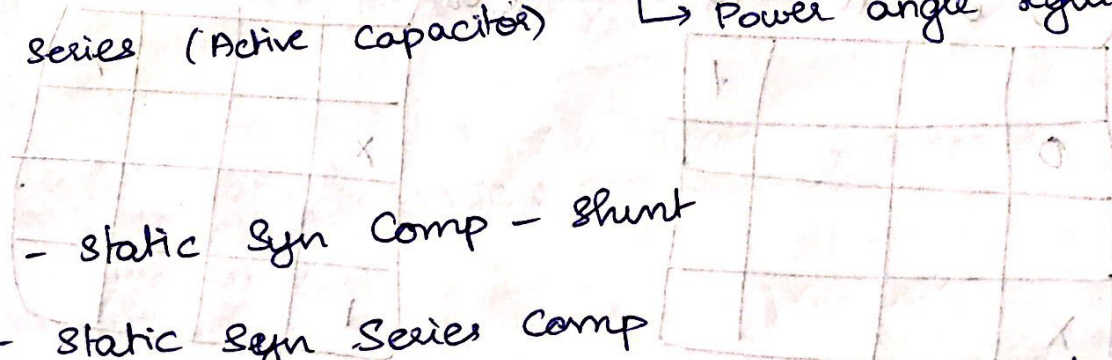 series (Active capacitor) ↳ Power angle
- Static Syn Comp - Shunt
- Static Syn Series Comp